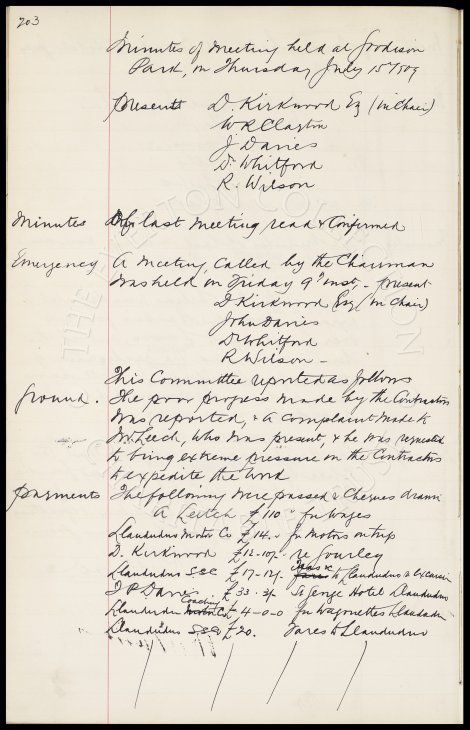 203
Minutes of Meeting held at Goodison
Park, on Thursday July 15th/09
Present D. Kirkwood Esq (in Chair)
W R Clayton
J Davies
Dr Whitford
R. Wilson
Minutes Of last Meeting read & Confirmed
Emergency A Meeting, called by the Chairman
was held on Friday 9th inst, - present
D Kirkwood Esq (in Chair)
John Davies
Dr Whitford
R Wilson -
This Committee reported as follows
Ground. The poor progress made by the Contractors
was reported, & a Complaint made to
Mr Leech, who was present, & he was requested
to bring extreme pressure on the Contractors
to expedite the Work
Payments The following were passed & Cheques drawn
A Leitch £110 " for Wages
Llandudno Motor Co £14.. for Motors on trip
D. Kirkwood £12-10/- re Gourley
Llandudno S.S.Co £17-12/- Teas &c to Llandudno & Excursion
J P Davies £33.3/- St George Hotel Llandudno
Llandudno Coaching Co £4-0-0 for Wagonettes Llandudno
Llandudno S.S.Co £20. Fares to Llandudno
THE EVERTON COLLECTION